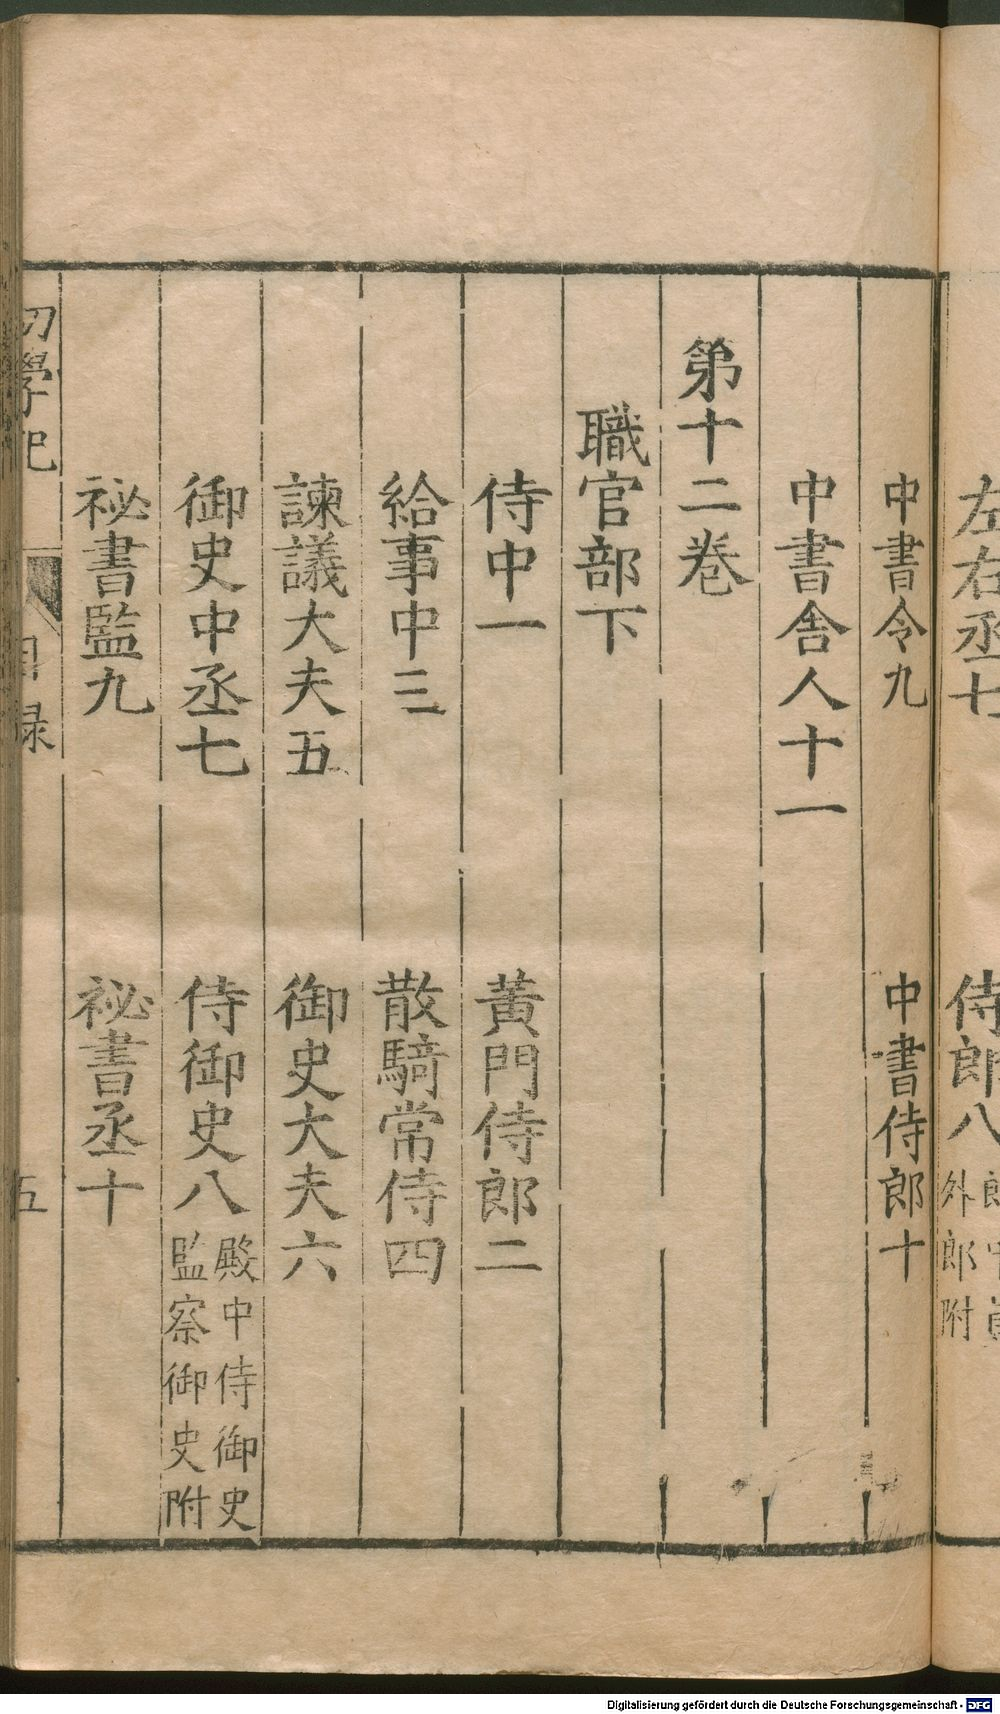 左右丞七　侍郎八
外郎附
中書令九　中書侍郎十
中書舎人十一
第十二巻
職官部下
侍中一　黄門侍郎二
給事中三　散騎常侍四
諫議大夫五　御史大夫六
御史中丞七　侍御史八殿中侍御史
監察御史附
祕書監九　祕書丞十
初學記　目録　五
Digitalisierung gefördert durch die Deutsche Forschungsgemeinschaft - DFG